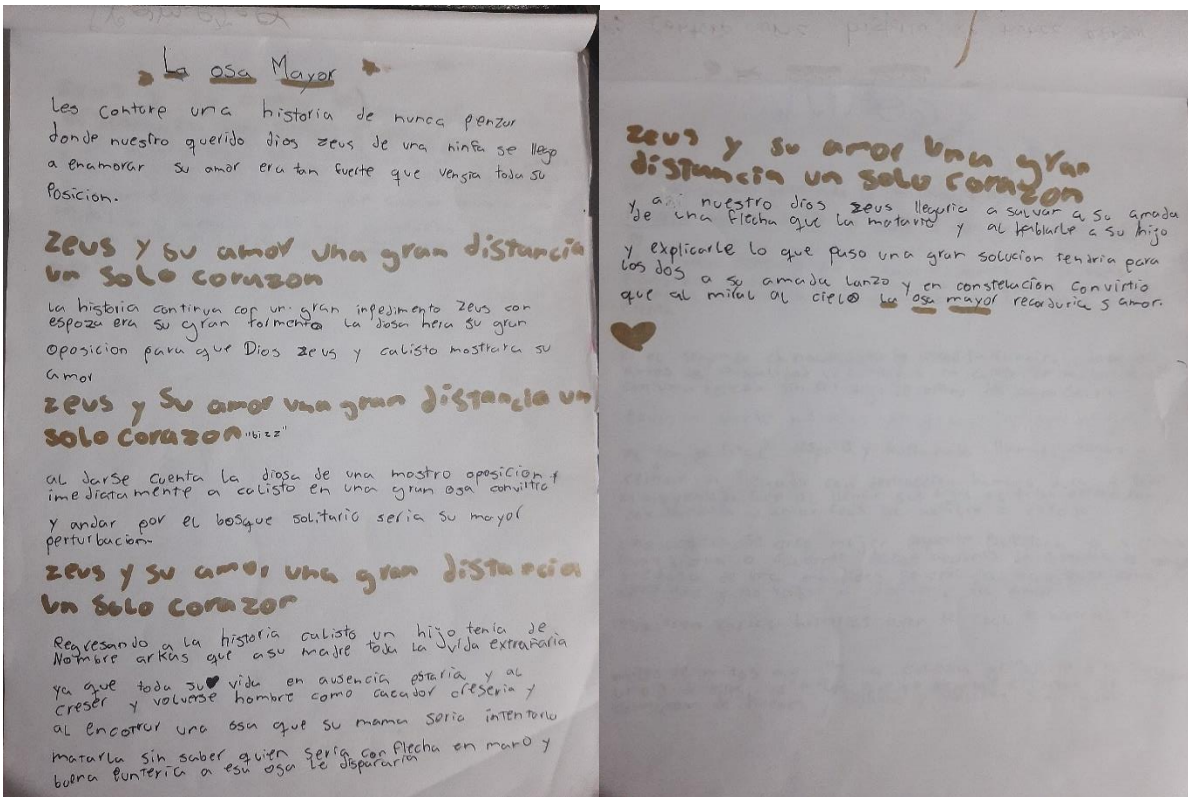 La osa Mayor
Les contare una historia de nunca penzar
donde nuestro querido dios zeus de una ninfa se llego
a enamorar su amor era tan fuerte que vensia toda su
Posicion.
zeus y su amor una gran distancia
un solo corazon
La historia continua con un gran inpedimento zeus con
espoza era su gran tormento la diosa hera su gran
oposicion para que Dios zeus y calisto mostrara su
amor
zeus y su amor una gran distancia un
solo corazon "bizz"
al darse cuenta la diosa de una mostro oposicion y
imediatamente a calisto en una gran osa convirtio
y andar por el bosque solitario seria su mayor
perturbacion.
zeus y su amor una gran distancia
un solo corazon
Regresando a la historia calisto un hijo tenia de
Nombre arkas que asu madre toda la vida extrañaria
ya que toda su vida en ausencia estaria y al
creser y volverse hombre como cacador creseria y
al encotrar una osa que su mama seria intentarlo
matarla sin saber quien seria con flecha en mano y
buena punteria a esa osa le dispararia
zeus y su amor una gran
distancia un solo corazon
y nuestro dios zeus llegaria a salvar a su amada
de una flecha que la mataria y al hablarle a su hijo
y explicarle lo que paso una gran solucion tendria para
los dos a su amada lanzo y en constelacion convirtio
que al mirar al cielo la osa mayor recordaria s amor.